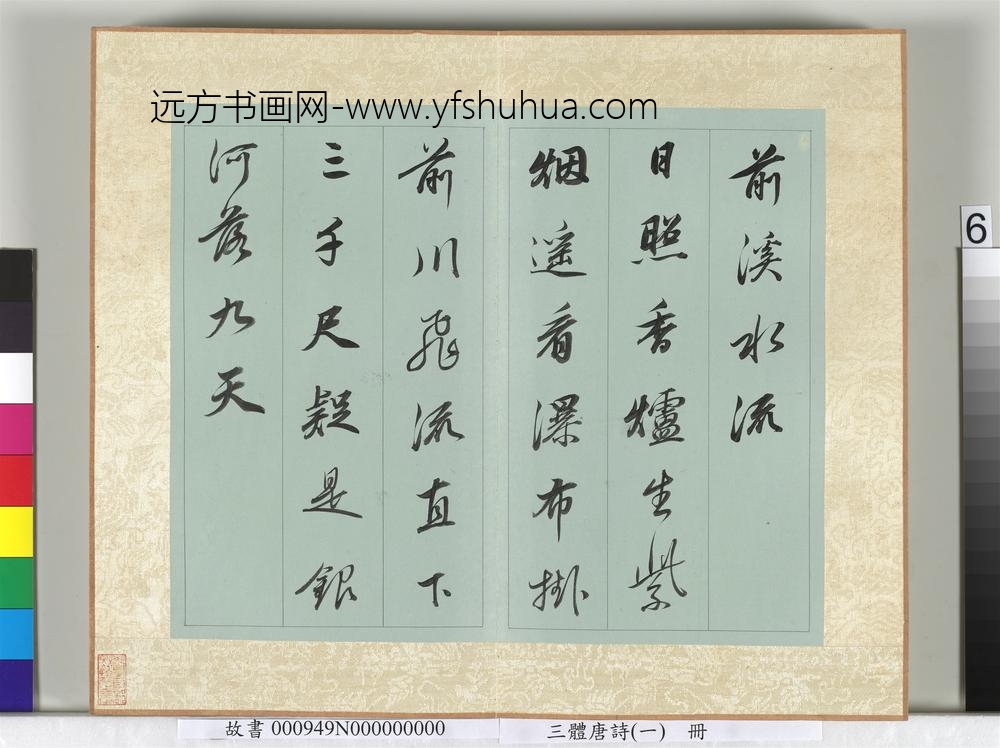 远方书画网-www.yfshuhua.com
前溪水流
日照香爐生紫
烟遥看瀑布掛
前川飛流直下
三千尺疑是銀
河落九天
6
故書 000949N000000000
三體唐詩(一) 冊